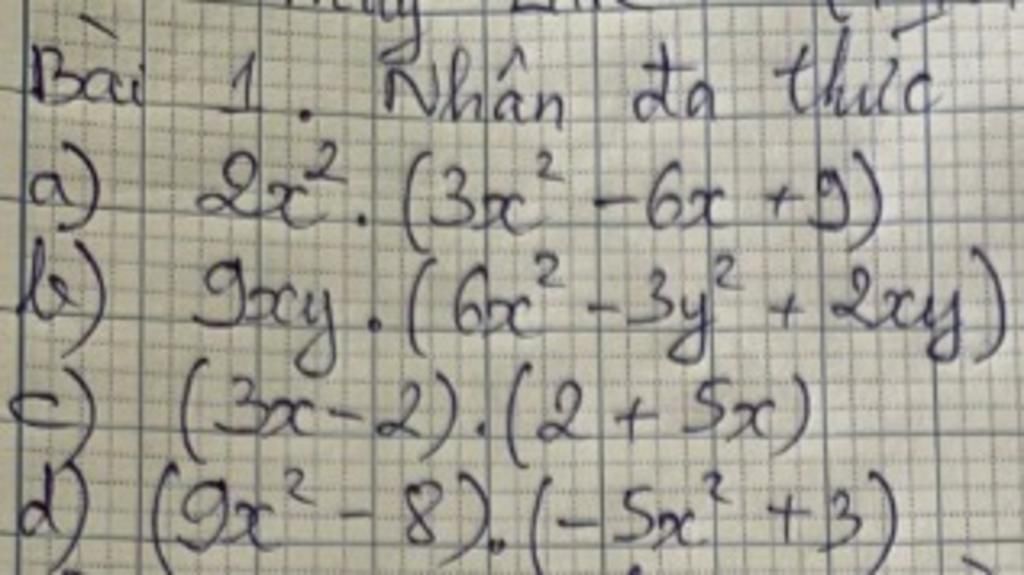 Bài 1. Nhân đa thức
a) 2x². (3x² - 6x + 9)
b) 9xy. (6x² - 3y² + 2xy)
c) (3x - 2). (2 + 5x)
d) (9x² - 8). (- 5x² + 3)